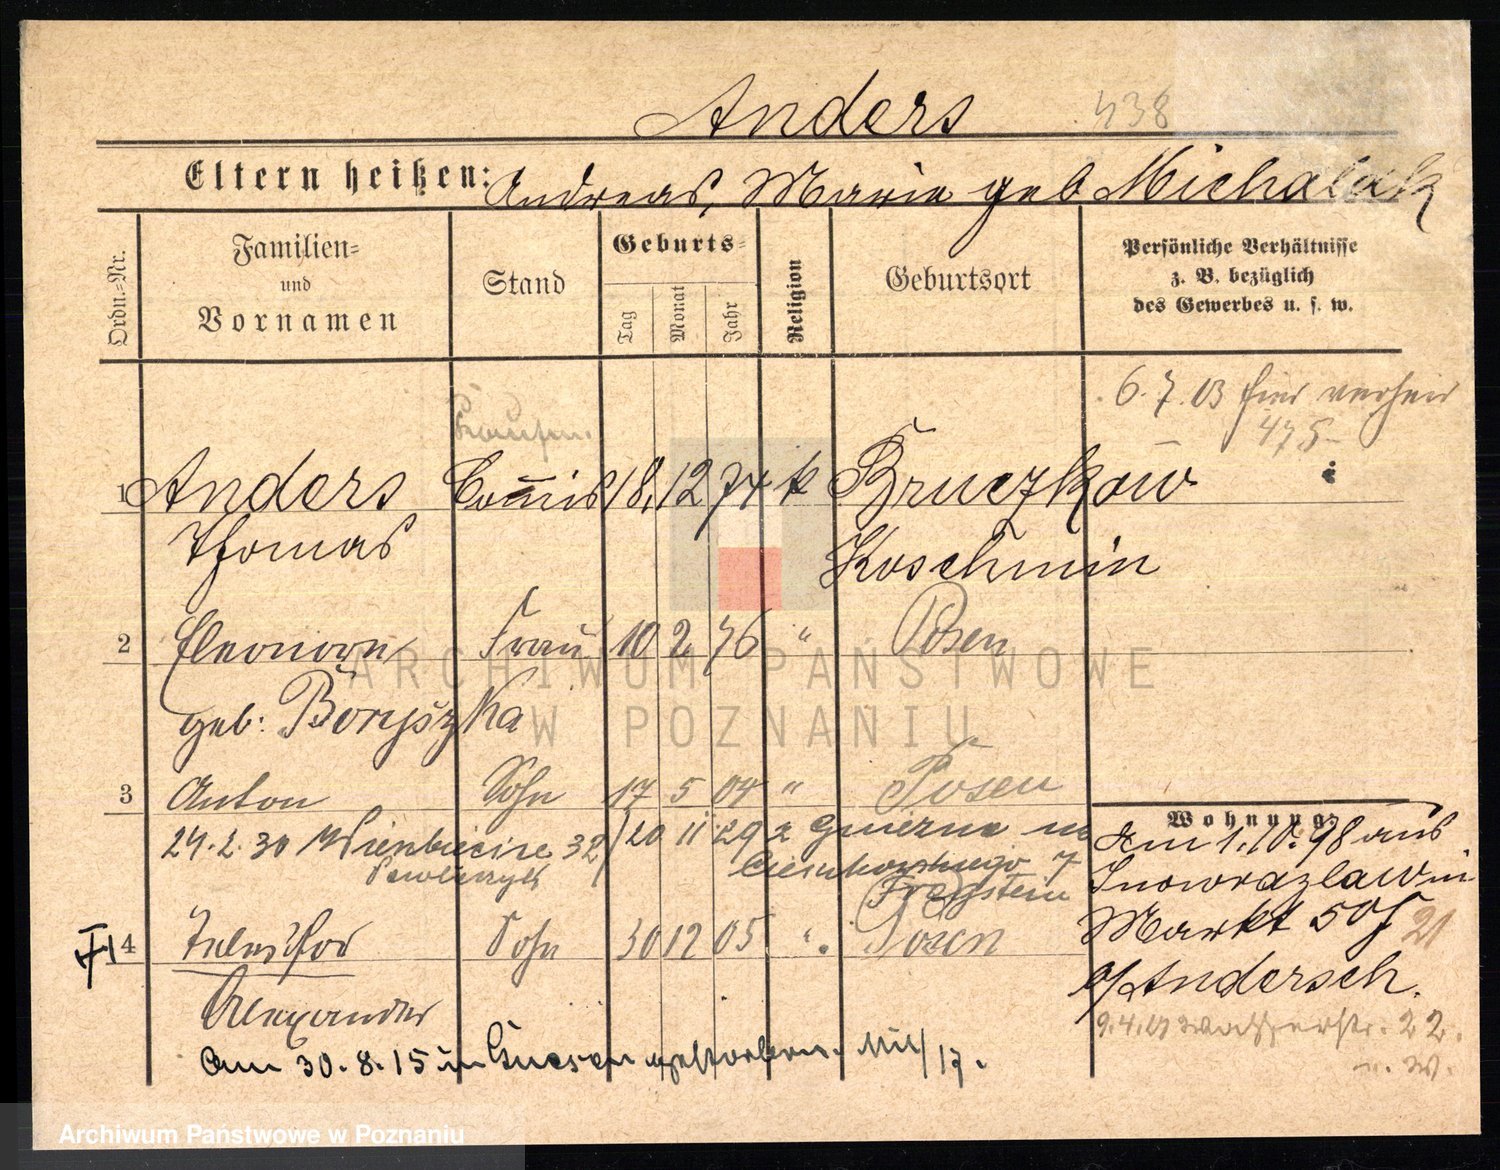 Anders 438
Eltern heißen: Andreas, Marie geb Michalak
Ordn.=Nr.
Familien=
und
Vornamen
Stand
Geburts=
Tag
Monat
Jahr
Religion
Geburtsort
Persönliche Verhältnisse
z. B. bezüglich
des Gewerbes u. s. w.
6.7.03 hier verheir
475
1 Anders Com̄is 18. 12 74 k Bruczkow
Thomas Koschmin
2 Eleonore Frau 10 2 76 " Posen
geb: Boryszka
3 Anton Sohn 17 5 04 " Posen
24.2.30 32 20 11 29 z
7
4 Telesfor Sohn 30 12 05 " Posen
Alexander
am 30.8.15 in Gnesen gestorben. 17.
Wohnung:
Am 1.10.98 aus
Inowrazlaw in
Markt 50 21
b/Andersch.
9.4.07 Wasserstr. 22.
n. W.
ARCHIWUM PAŃSTWOWE
W POZNANIU
Archiwum Państwowe w Poznaniu